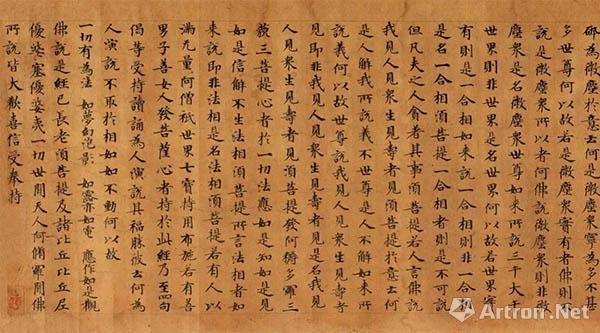 碎為微塵於意云何是微塵眾寧為多不甚
多世尊何以故若是微塵眾實有者佛則
說是微塵眾所以者何佛說微塵眾則非微
塵眾是名微塵眾世尊如來所說三千大千
世界則非世界是名世界何以故若世界實
有則是一合相如來說一合相則非一合相
是名一合相須菩提一合相者則是不可說
但凡夫之人貪著其事須菩提若人言佛說
我見人見眾生見壽者見須菩提於意云何
是人解我所說義不世尊是人不解如來所
說義何以故世尊說我見人見眾生見壽者
見即非我見人見眾生見壽者見是名我見
人見眾生見壽者見須菩提發阿耨多羅三
藐三菩提心者於一切法應如是知如是見
如是信解不生法相須菩提所言法相者如
來說即非法相是名法相須菩提若有人以
滿无量阿僧祇世界七寶持用布施若有善
男子善女人發菩薩心者持於此經乃至四句
偈等受持讀誦為人演說其福勝彼云何為
人演說不取於相如如不動何以故
一切有為法 如夢幻泡影 如露亦如電 應作如是觀
佛說是經已長老須菩提及諸比丘比丘尼
優婆塞優婆夷一切世間天人阿脩羅聞佛
所說皆大歡喜信受奉持
Artron.Net